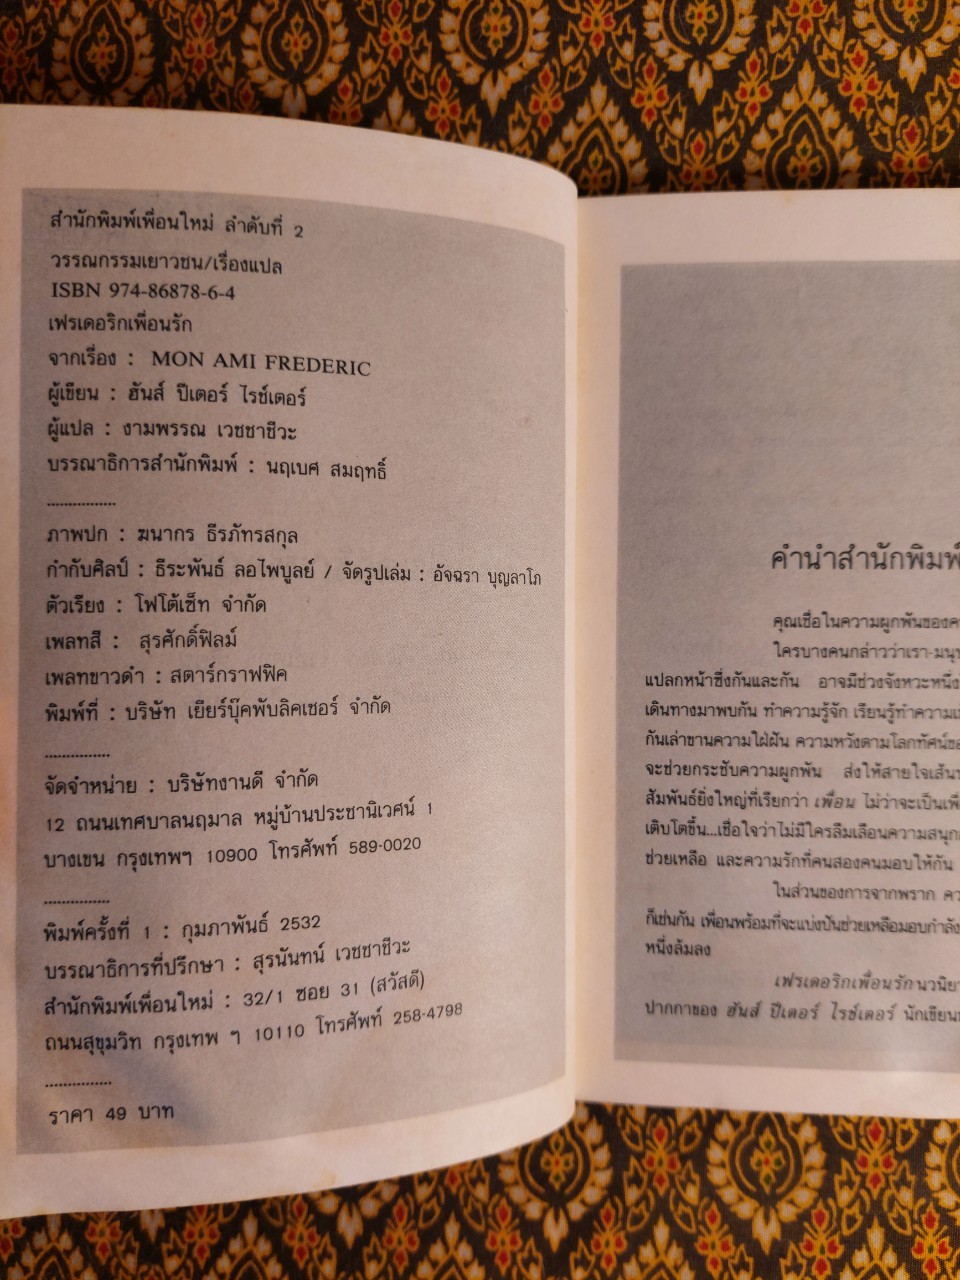 สำนักพิมพ์เพื่อนใหม่ ลำดับที่ 2
วรรณกรรมเยาวชน/เรื่องแปล
ISBN 974-86878-6-4
เฟรเดอริกเพื่อนรัก
จากเรื่อง : MON AMI FREDERIC
ผู้เขียน : ฮันส์ ปีเตอร์ ไรช์เตอร์
ผู้แปล : งามพรรณ เวชชาชีวะ
บรรณาธิการสำนักพิมพ์ : นฤเบศ สมฤทธิ์
................
ภาพปก : ฆนากร ธีรภัทรสกุล
กำกับศิลป์ : ธีระพันธ์ ลอไพบูลย์ / จัดรูปเล่ม : อัจฉรา บุญลาโภ
ตัวเรียง : โฟโต้เซ็ท จำกัด
เพลทสี : สุรศักดิ์ฟิลม์
เพลทขาวดำ : สตาร์กราฟฟิค
พิมพ์ที่ : บริษัท เยียร์บุ๊คพับลิคเชอร์ จำกัด
...............
จัดจำหน่าย : บริษัทงานดี จำกัด
12 ถนนเทศบาลนฤมาล หมู่บ้านประชานิเวศน์ 1
บางเขน กรุงเทพฯ 10900 โทรศัพท์ 589-0020
...............
พิมพ์ครั้งที่ 1 : กุมภาพันธ์ 2532
บรรณาธิการที่ปรึกษา : สุรนันทน์ เวชชาชีวะ
สำนักพิมพ์เพื่อนใหม่ : 32/1 ซอย 31 (สวัสดี)
ถนนสุขุมวิท กรุงเทพ ฯ 10110 โทรศัพท์ 258-4798
...............
ราคา 49 บาท
คำนำสำนักพิมพ์
คุณเชื่อในความผูกพันของ
ใครบางคนกล่าวว่าเรา-มนุษ
แปลกหน้าซึ่งกันและกัน อาจมีช่วงจังหวะหนึ่ง
เดินทางมาพบกัน ทำความรู้จัก เรียนรู้ทำความ
กันเล่าขานความใฝ่ฝัน ความหวังตามโลกทัศน์ของ
จะช่วยกระชับความผูกพัน ส่งให้สายใยเส้น
สัมพันธ์ยิ่งใหญ่ที่เรียกว่า เพื่อน ไม่ว่าจะเป็น
เติบโตขึ้น...เชื่อใจว่าไม่มีใครลืมเลือนความสนุก
ช่วยเหลือ และความรักที่คนสองคนมอบให้กัน
ในส่วนของการจากพราก
ก็เช่นกัน เพื่อนพร้อมที่จะแบ่งปันช่วยเหลือมอบกำลัง
หนึ่งล้มลง
เฟรเดอริกเพื่อนรัก นวนิยา
ปากกาของ ฮันส์ ปีเตอร์ ไรช์เตอร์ นักเขียน